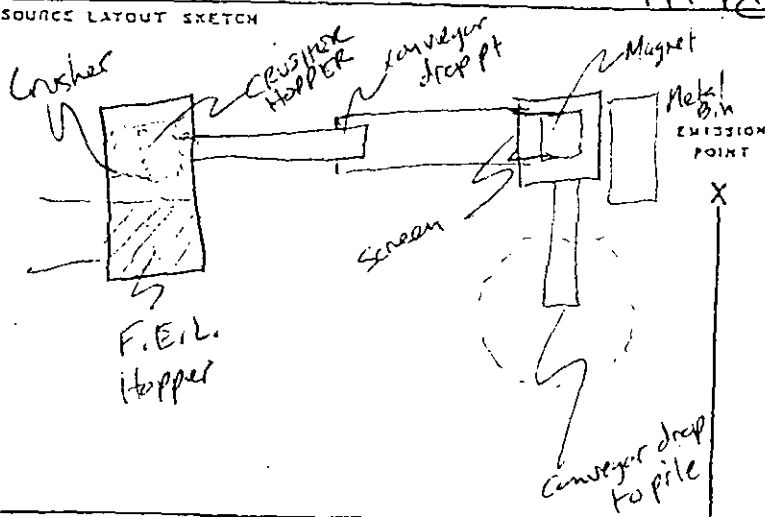 SOURCE LAYOUT SKETCH
Crusher
CRUSHER
HOPPER
conveyor
drop pt
Magnet
Metal
Bin
EMISSION
POINT
X
Screen
F.E.L.
Hopper
Conveyor drop
to pile